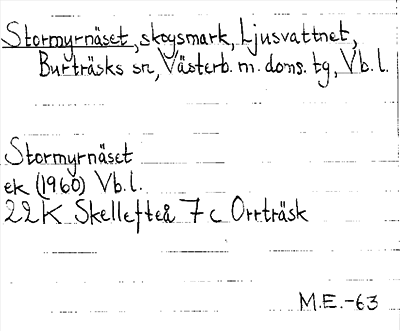 Stormyrnäset, skogsmark, Ljusvattnet,
Burträsks sn, Västerb. m. doms. tg, Vb. l.
Stormyrnäset
ek (1960) Vb. l.
22K Skellefteå 7 c Orrträsk
M.E.-63